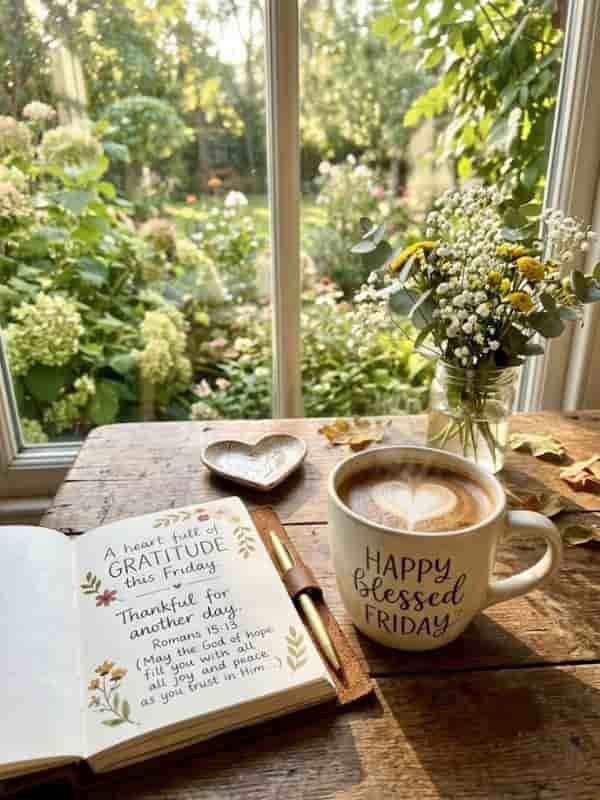 A heart full of
GRATITUDE
this Friday
Thankful for
another day.
Romans 15:13
(May the God of hope
fill you with all
all joy and peace
as you trust in Him...)
HAPPY
blessed
FRIDAY